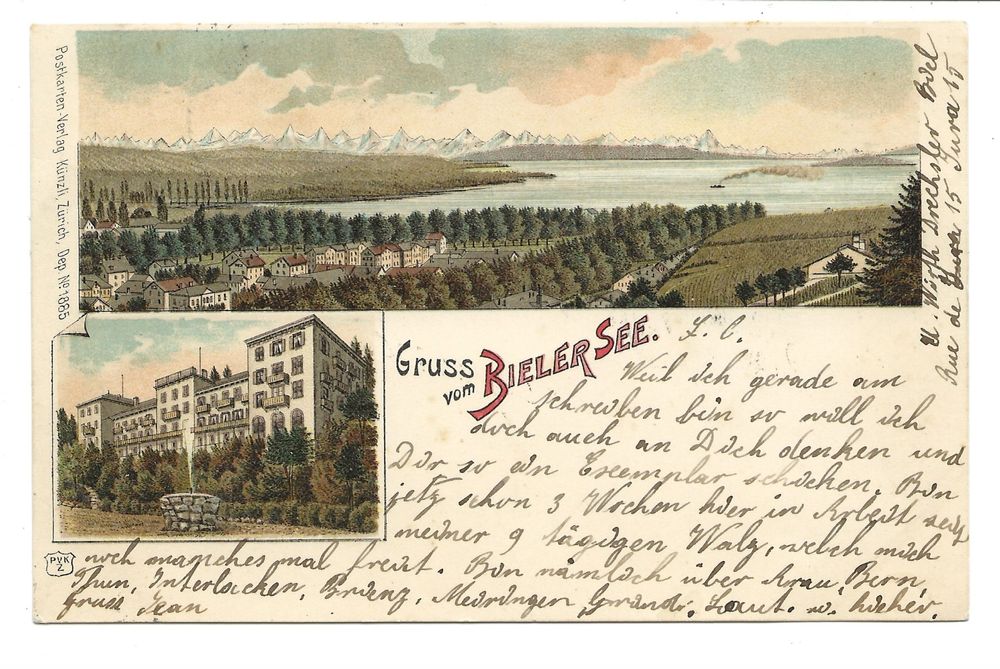 Postkarten-Verlag Künzli, Zürich, Dep. No 1865
Gruss
vom
BIELER SEE.
Z. C.
Weil ich gerade am
schreiben bin so will ich
doch auch an Dich denken und
Dir so ein Exemplar schicken. Bin
jetz schon 3 Wochen hier in Arbeit seit
meiner 9 tägigen Walz, welch mich
noch manches mal freut. Bin nämlich über Arau, Bern
Thun, Interlacken, Brienz, Meiringen Grindr. Laut. n. hieher.
Gruss Jean
U. Wirth Drechsler Biel
Rue de 15 Jura 15
PVK
Z